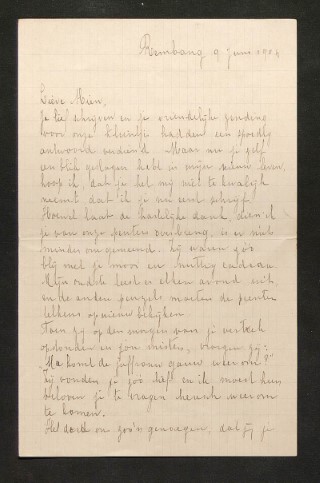 Rembang, 9 Juni 1904
Lieve Mien,
Je lief schrijven en je vriendelijke zending
voor onze kleintjes hadden een spoedig
antwoord verdiend. Maar nu je zelf
een blik geslagen hebt in mijn nieuw leven,
hoop ik, dat je het mij niet te kwalijk
neemt, dat ik je nu eerst schrijf.
Hoewel laat de hartelijke dank, dien ik
je van onze peuters overbreng, is er niet
minder om gemeend. Zij waren zoo
blij met je mooi en nuttig cadeau.
Mijn oudste leest er elken avond uit,
en de andere moeten de prenten
telkens opnieuw bekijken.
Toen zij op den morgen voor je vertrek
opstonden en jou misten, vroegen zij:
"Ma komt de juffrouw gauw weerom?"
Zij vonden je zoo lief en ik moest hun
beloven je te vragen weerom
te komen.
Het doet ons zoo'n genoegen, dat jij je